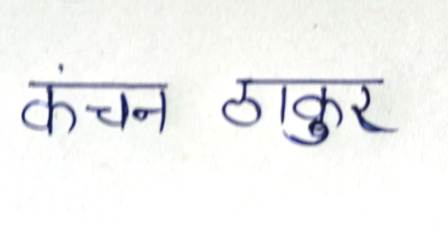 कंचन ठाकुर